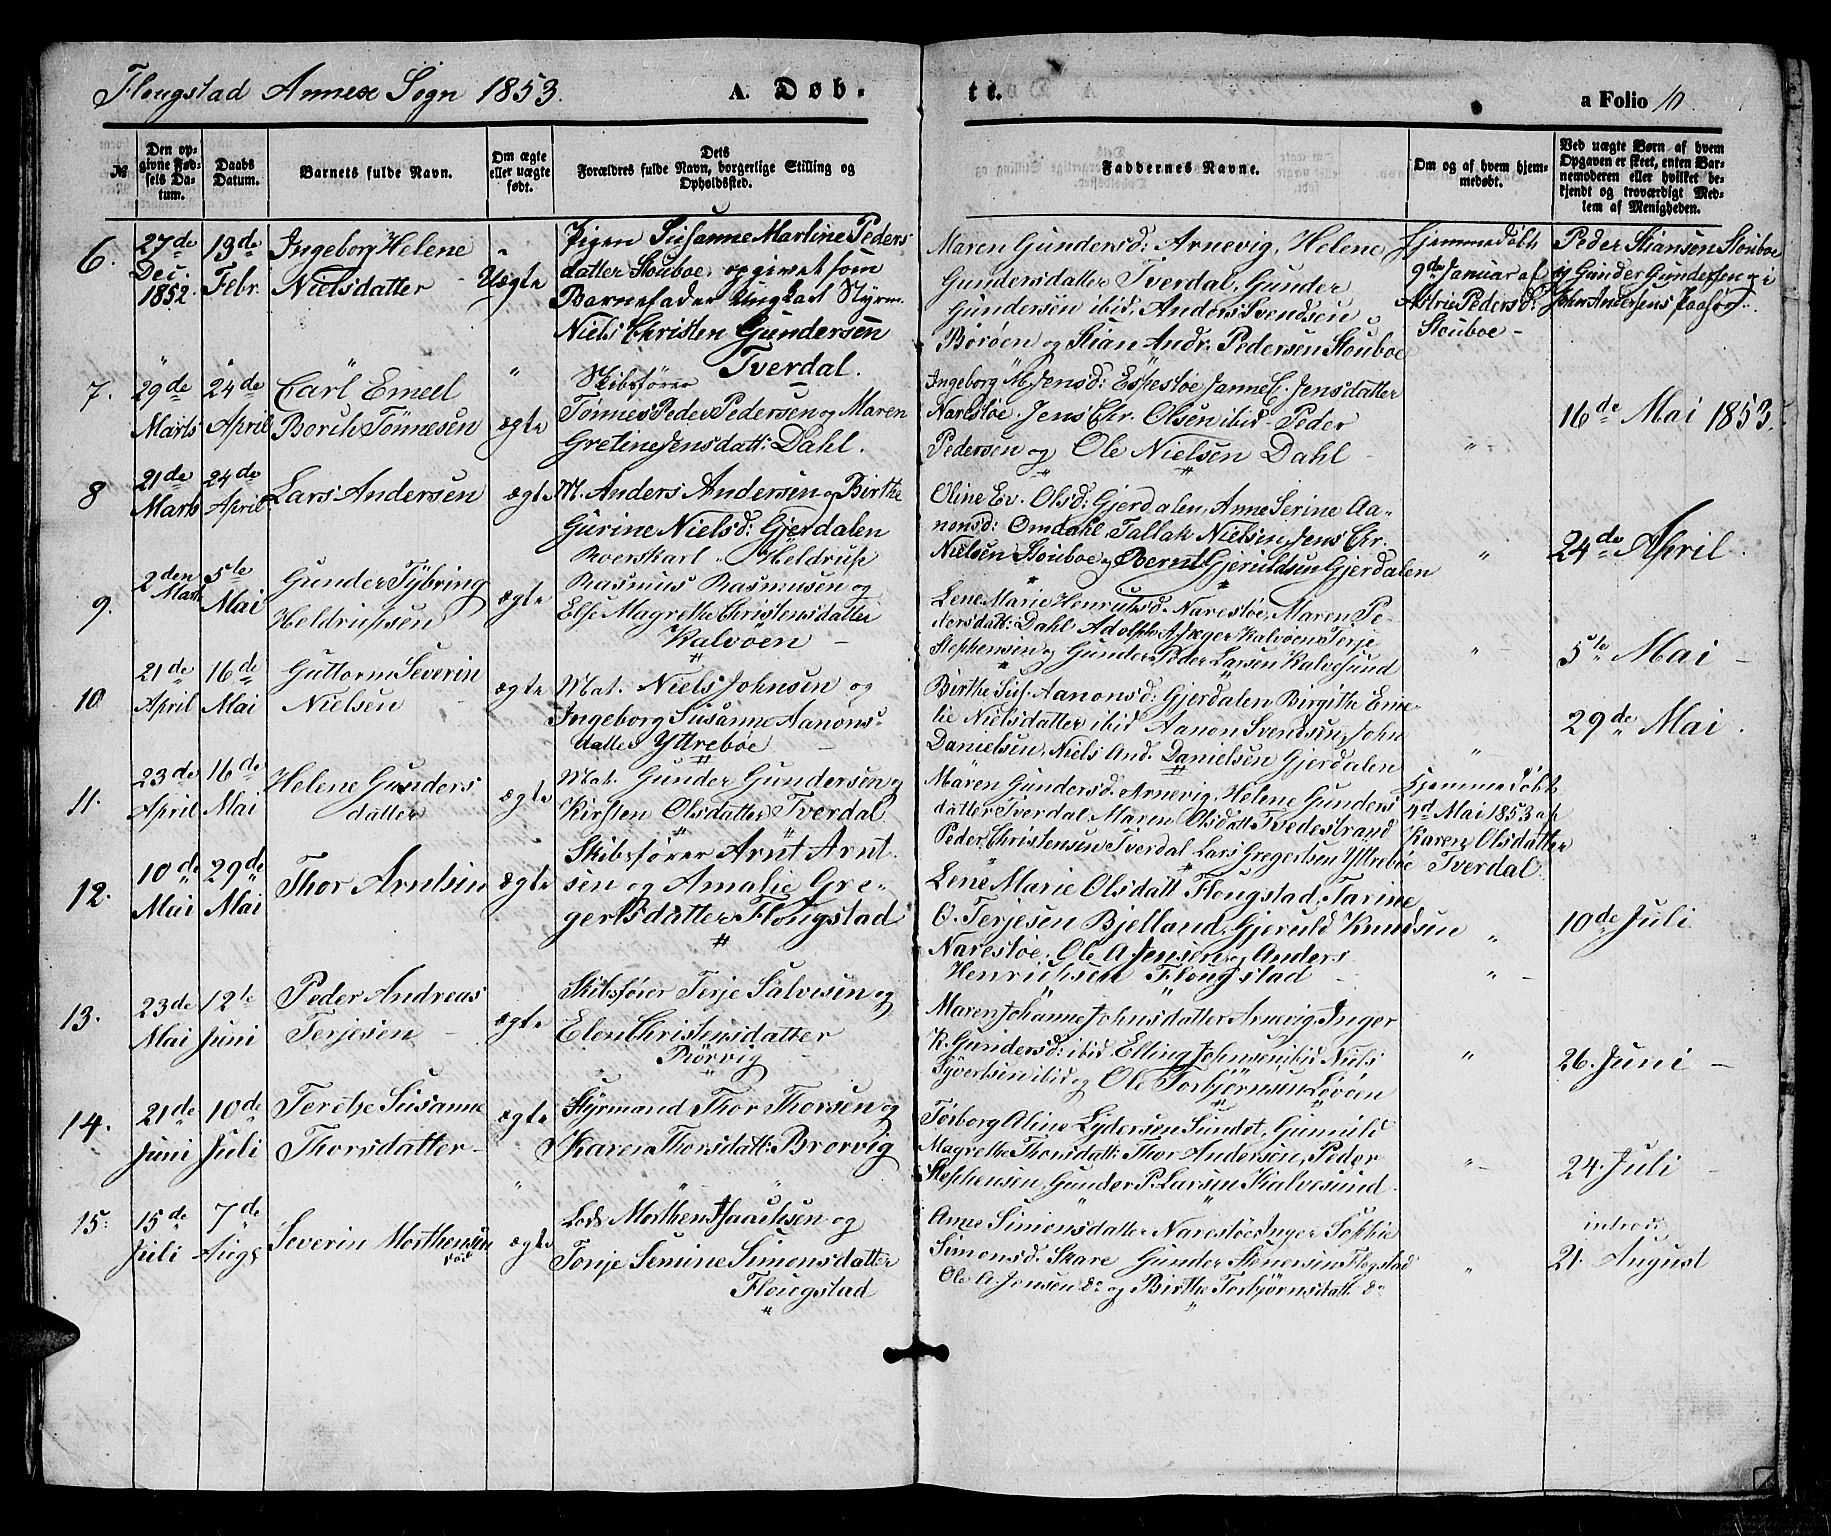 Flougstad Annex Sogn 1853. A. Døb. te. a Folio 10
№
Den opgivne Fødsels Datum.
Daabs Datum.
Barnets fulde Navn.
Om ægte eller uægte født.
Dets Forældres fulde Navn, borgerlige Stilling og Opholdssted.
Faddernes Navne.
Om og af hvem hjemmedøbt.
Ved uægte Børn af hvem Opgaven er skeet, enten Barnemoderen eller hvilket bekjendt og troværdigt Medlem af Menigheden.
6.
27de Dec. 1852.
13de Febr.
Ingeborg Helene
Nielsdatter
Uægte
Pigen Susanne Martine Peders
datter Stouboe, opgivet som
Barnefader Ungkarl Styrm.
Niels Christen Gundersen
Tverdal.
Maren Gundersd: Arnevig, Helene
Gundersdatter Tverdal, Gunder
Gundersen ibid, Anders Svendsen
Börøen og Stian Andr. Pedersen Stouboe
Hjemmedøbt
9de Januar af
Astrie Pedersd:
Stouboe
Peder Stiansen Stouboe
og Gunder Gundersen og i
John Andersens Paasyn.
7.
29de Marts
24de April
Carl Emeel
Borch Tönnesen
ægte
Skibsfører
Tønnes Peder Pedersen og Maren
Gretine Jensdatt: Dahl.
Ingeborg M. Jensd: Eskestøe Janne C. Jensdatter
Narestøe. Jens Chr. Olsen ibid Peder
Pedersen og Ole Nielsen Dahl
"
16de Mai 1853.
8
21de Marts
24de April
Lars Andersen
ægte
M. Anders Andersen og Birthe
Gurine Nielsd: Gjerdalen
Oline Ev. Olsd: Gjerdalen, Anne Serine Aa-
nonsd: Omdahl, Tallak Nielsen, Jens Chr.
Nielsen Stouboe og Övernt Gjeruldsen Gjerdalen
"
24de April.
9.
2den Marts
5te Mai
Gunder Tybring
Heldrupsen
ægte
Roerskarl Heldrup
Rasmus Rasmusen og
Else Magrethe Christensdatter
Kalvöen
Lene Marie Henriksd. Narestøe, Maren Pe-
dersdatt: Dahl Adolph A. Jæger Kalvöen Terje
Stephensen og Gunder Peder Larsen Kalvesund
"
5te Mai
10
21de April
16de Mai
Guttorm Severin
Nielsen
ægte
Mat. Niels Johnsen og
Ingeborg Susanne Aanons-
datter Yttrebøe
Birthe Sus. Aanonsd: Gjerdalen Birgithe Eme-
lie Nielsdatter ibid Aanon Svendsen, John
Danielsen, Niels And. Danielsen Gjerdalen
"
29de Mai.
11.
23de April
16de Mai
Helene Gunders
datter
ægte
Mat. Gunder Gundersen og
Kirsten Olsdatter Tverdal
Maren Gundersd: Arnevig, Helene Gunders
datter Tverdal, Maren Olsdatt Tvedestrand
Peder Christensen Tverdal, Lars Gregertsen Yttrebøe
Hjemmedøbt
9d Mai 1853 af
Karen Olsdatter
Tverdal.
12.
10de Mai
29de Mai
Thor Arntsen
ægte
Skibsfører Arnt Arnt-
sen og Amalie Gre-
gertsdatter Flougstad
Lene Marie Olsdatt Flougstad, Tarine
O. Terjesen Bjelland, Gjeruld Knudsen
Narestøe, Ole A Jensen og Anders
Henrichsen Flougstad
"
10de Juli
13.
23de Mai
12te Juni
Peder Andreas
Terjesen
ægte
Skibsfører Terje Salvesen og
Elen Christensdatter
Rörvig
Maren Johanne Johnsdatter Arnevig, Inger
K. Gundersd: ibid Elling Johnsen ibid Niels
Syvertsen ibid og Ole Torbjörnsen Løvöen
"
26. Juni
14.
21de Juni
10de Juli
Terese Susanne
Thorsdatter
ægte
Styrmand Thor Thorsen og
Karen Thorsdatt: Brorvig
Torborg Aline Lydersen Sundet, Gunnuld
Magrethe Thorsdatt: Thor Andersen, Peder
Stephensen, Gunder P. Larsen Kalvesund
"
24. Juli
15.
15de Juli
7de Aug
Severin Morthensen
ægte
Lods Morthen Isaachsen og
Tonje Semine Simonsdatter
Flougstad
Anne Simonsdatter Narestøe Inger Sophie
Simonsd: Skare Gunder Stenersen Flogstad
Ole A. Jensen do og Birthe Torbjörnsdatt do
"
introd.
21. August